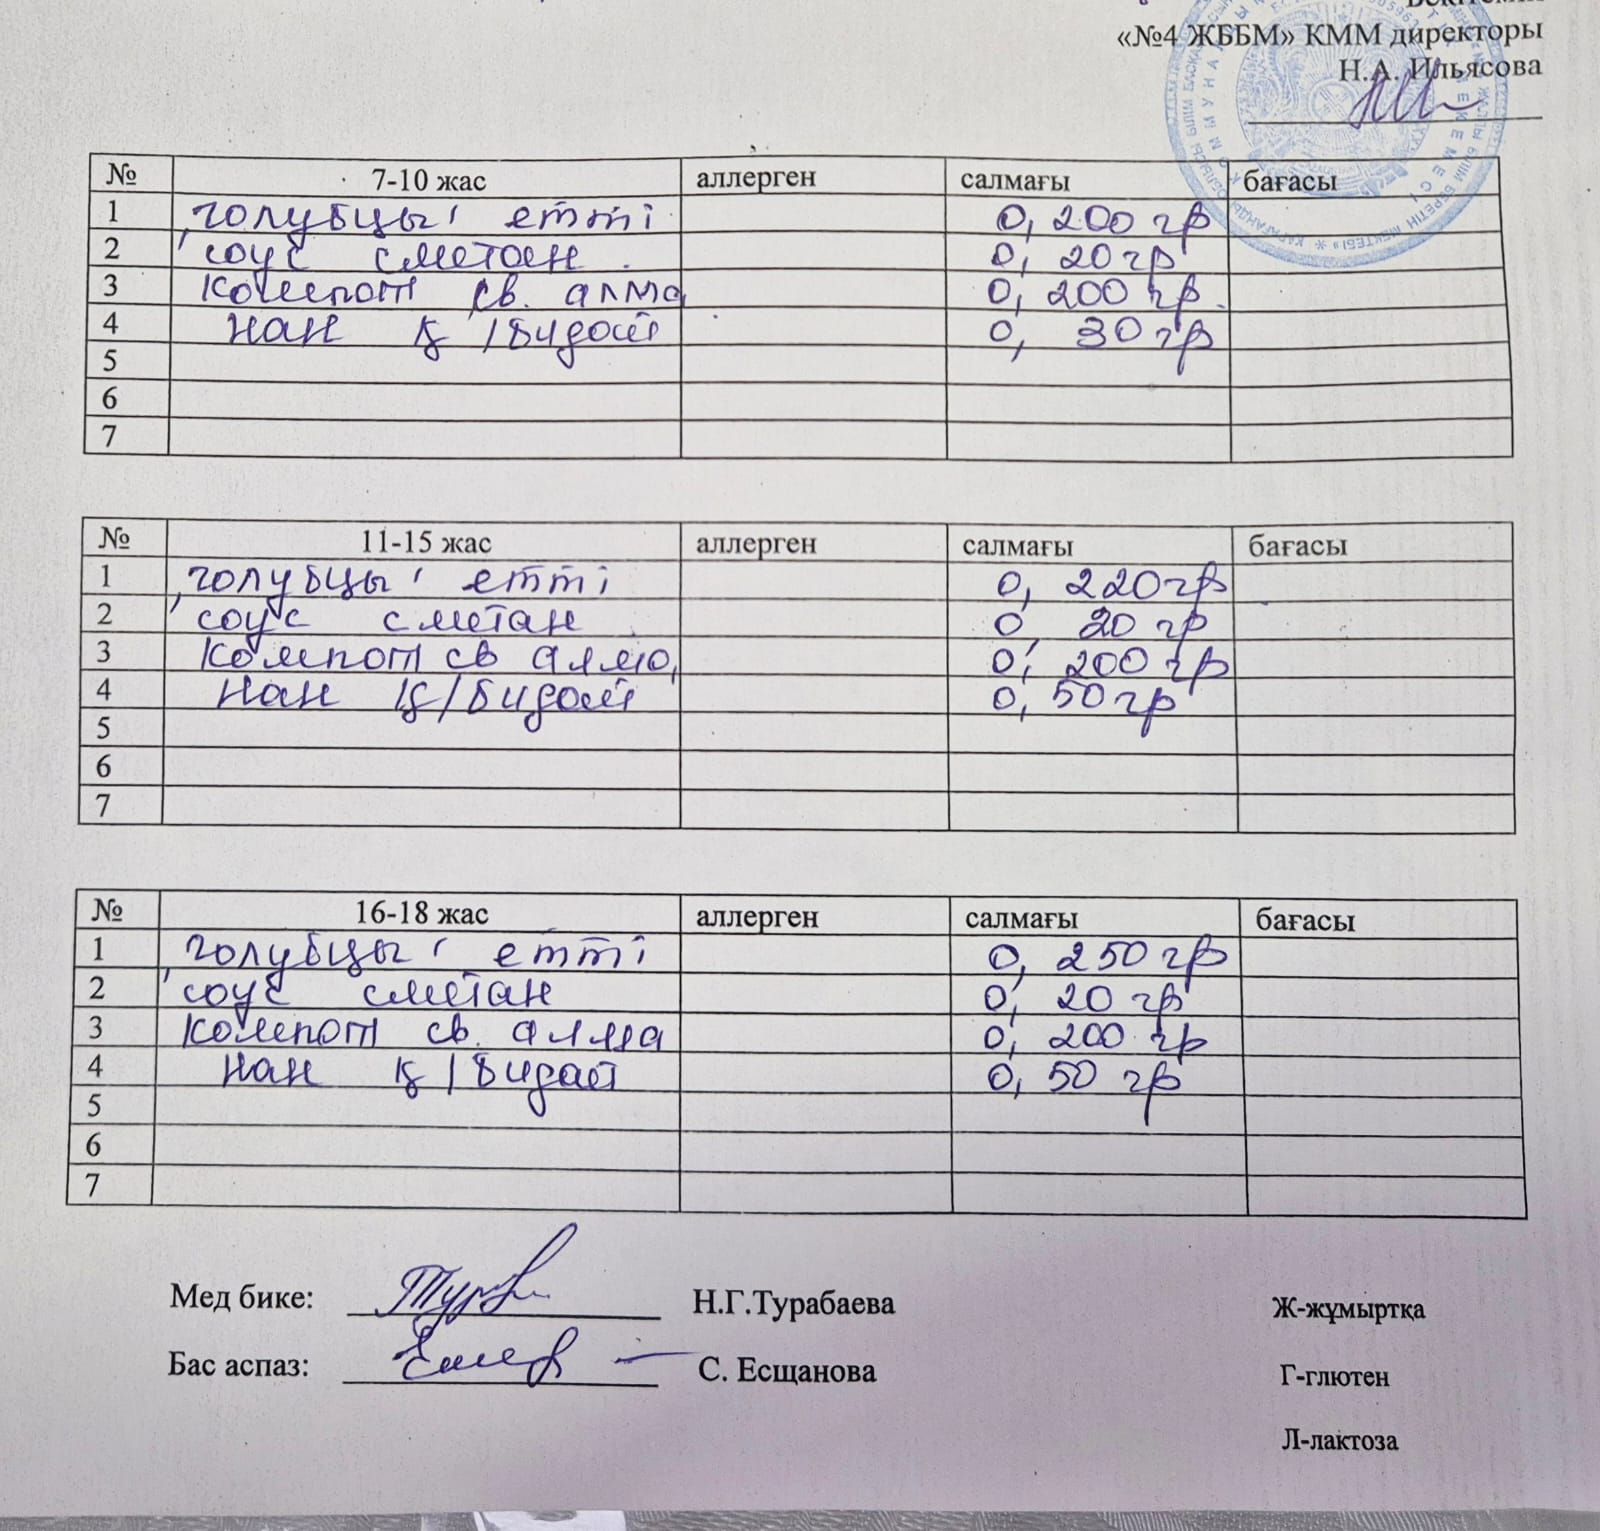 «№4 ЖББМ» КММ директоры
Н.А. Ильясова
№ 7-10 жас аллерген салмағы бағасы
1 "голубцы" етті 0, 200 гр
2 соус сметан 0, 20 гр
3 Компот св. алма 0, 200 гр
4 Нан қ/бидай 0, 30 гр
5
6
7
№ 11-15 жас аллерген салмағы бағасы
1 "голубцы" етті 0, 220 гр
2 соус сметан 0, 20 гр
3 Компот св алма 0, 200 гр
4 Нан қ/бидай 0, 50 гр
5
6
7
№ 16-18 жас аллерген салмағы бағасы
1 "голубцы" етті 0, 250 гр
2 соус сметан 0, 20 гр
3 Компот св. алма 0, 200 гр
4 Нан қ/бидай 0, 50 гр
5
6
7
Мед бике: Н.Г.Турабаева Ж-жұмыртқа
Бас аспаз: С. Есщанова Г-глютен
Л-лактоза